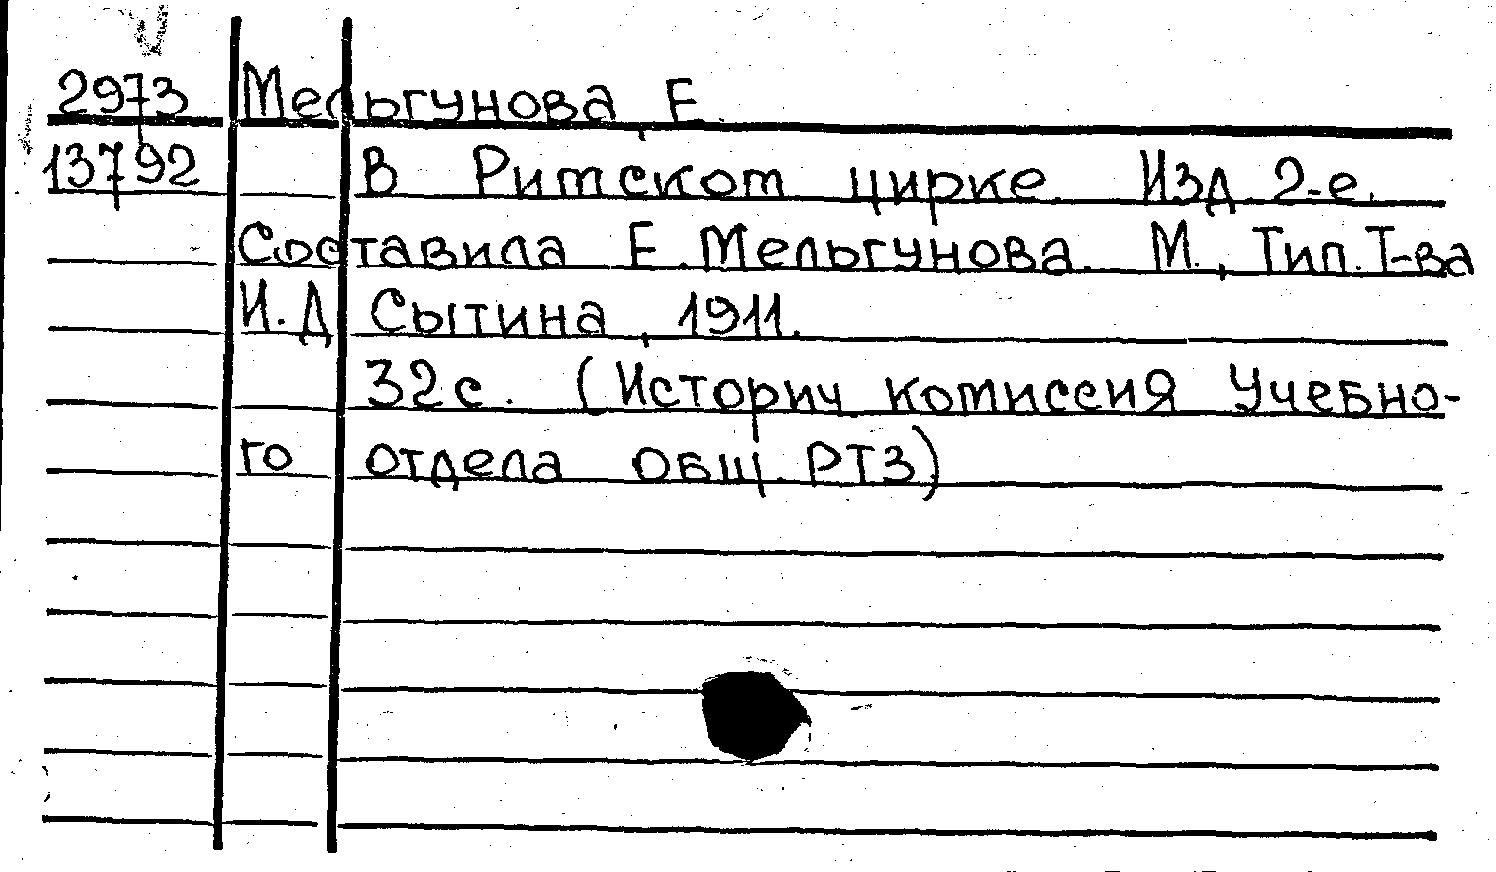 2973 Мельгунова, Е.
13792 В Ритском цирке. Изд. 2-е.
Составила Е. Мельгунова. М., Тип. Т-ва
И. Д. Сытина, 1911.
32 с. (Историч комиссия Учебно-
го отдела Общ. РТЗ)